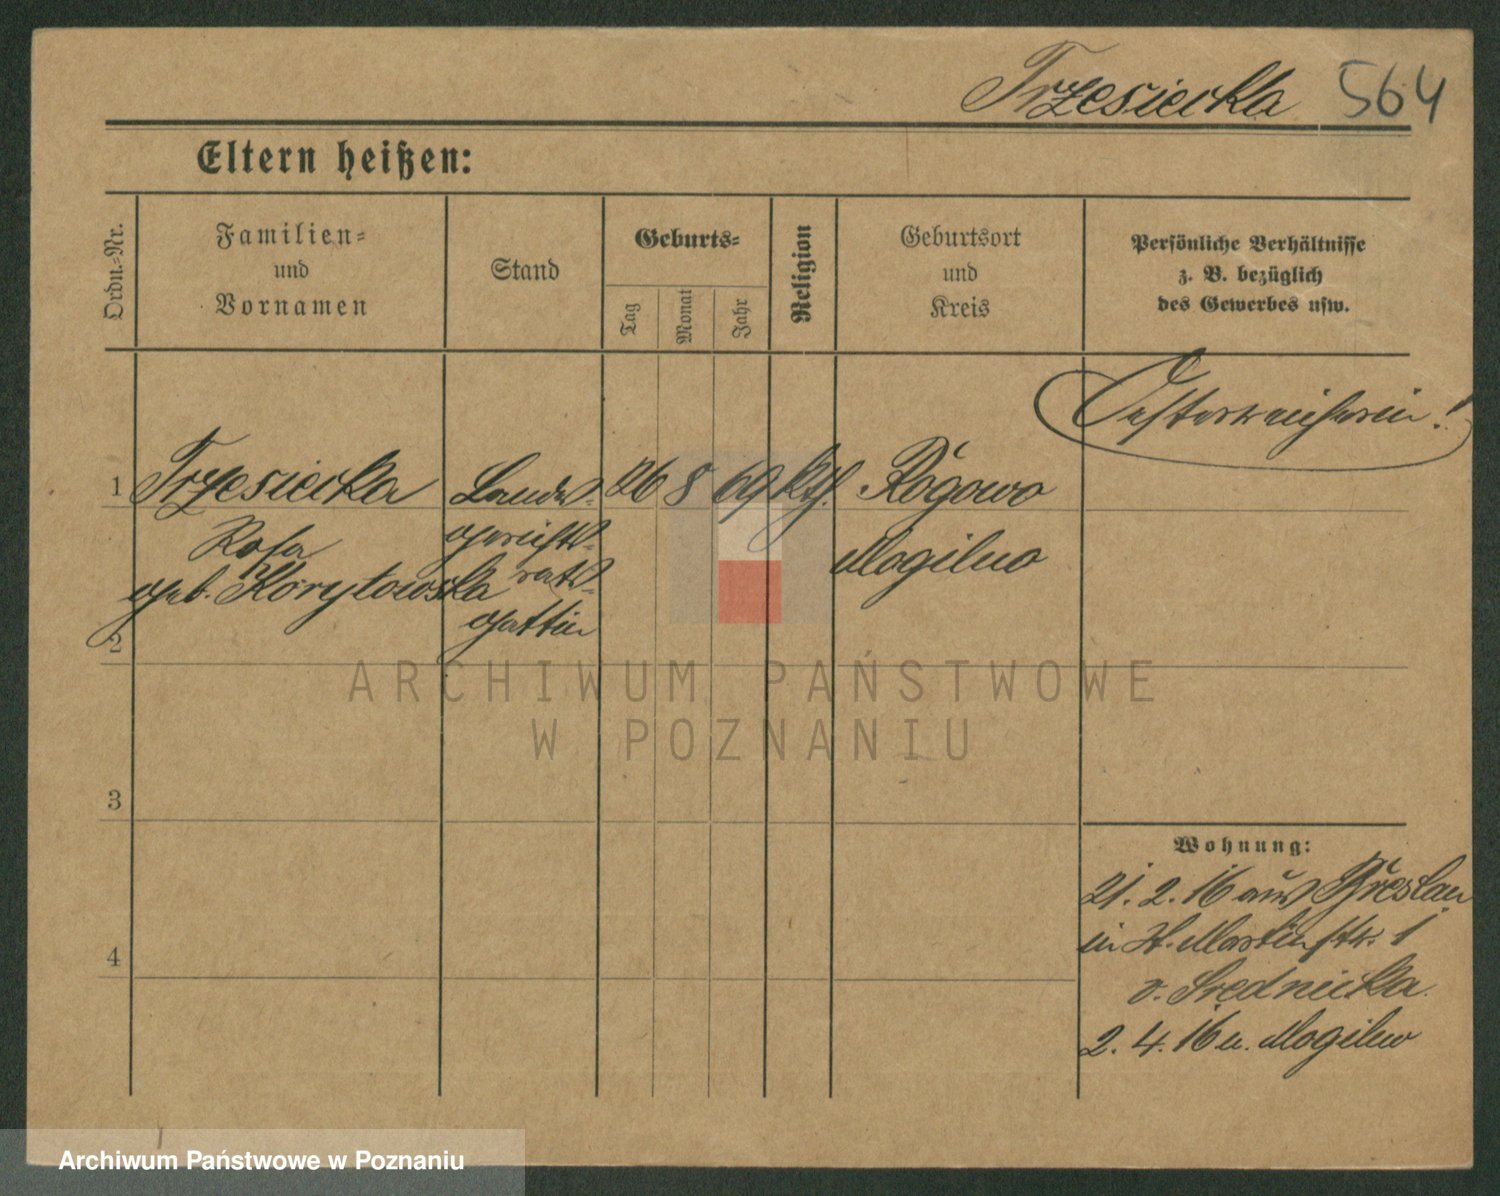 Trzesiecka 564
Eltern heißen:
Ordn.=Nr.
Familien=
und
Vornamen
Stand
Geburts=
Tag
Monat
Jahr
Religion
Geburtsort
und
Kreis
Persönliche Verhältnisse
z. B. bezüglich
des Gewerbes usw.
Oesterreicherin!
1 Trzesiecka Landes= 26 8 69 kth. Rogowo
Rosa gerichts=
Mogilno
geb. Korytowska rats=
gattin
2
ARCHIWUM PAŃSTWOWE
W POZNANIU
3
Wohnung:
21. 2. 16 aus Breslau
in St. Martinstr. 1
v. Srednicka
4
2. 4. 16 n. Mogilno
Archiwum Państwowe w Poznaniu